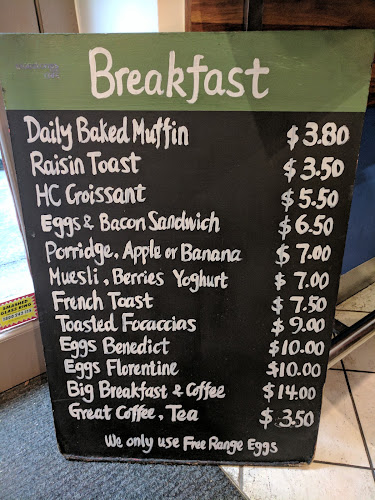 Breakfast
Daily Baked Muffin $3.80
Raisin Toast $3.50
HC Croissant $5.50
Eggs & Bacon Sandwich $6.50
Porridge, Apple or Banana $7.00
Muesli, Berries Yoghurt $7.00
French Toast $7.50
Toasted Focaccias $9.00
Eggs Benedict $10.00
Eggs Florentine $10.00
Big Breakfast & Coffee $14.00
Great Coffee, Tea $3.50
We only use Free Range Eggs
SMASHED
GLASS RING